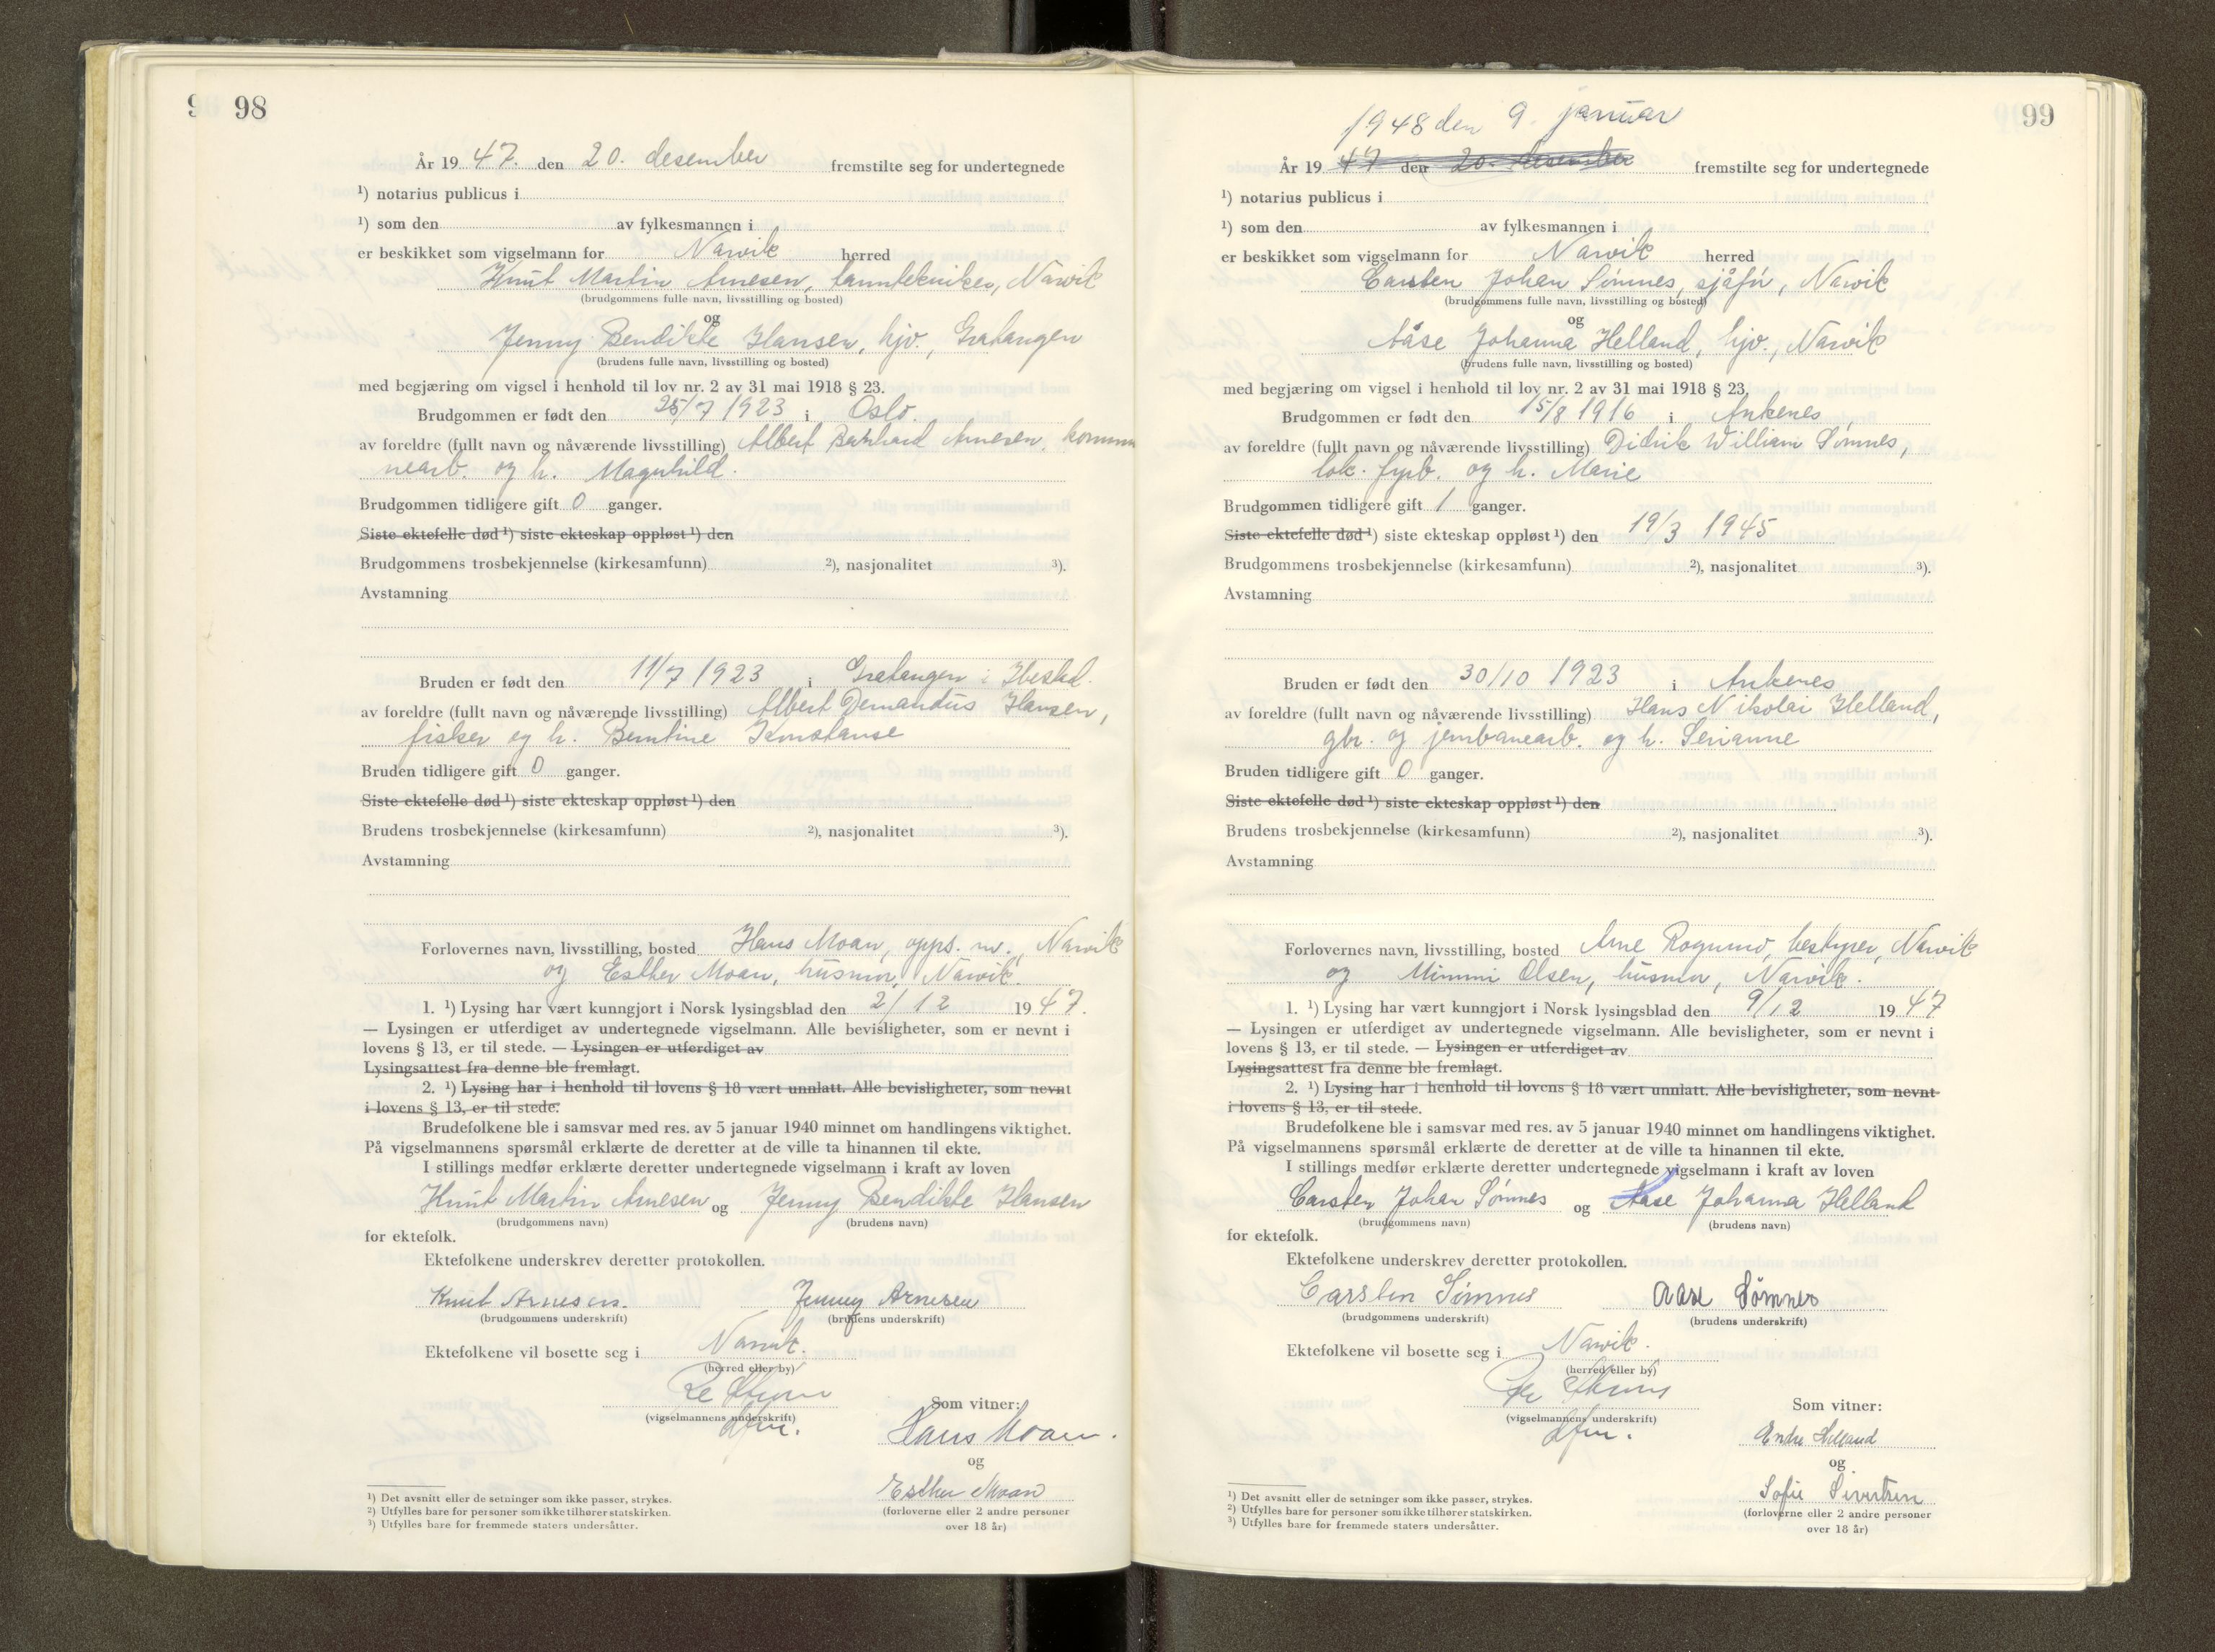 98
År 19 47. den 20. desember fremstilte seg for undertegnede
¹) notarius publicus i
¹) som den av fylkesmannen i
er beskikket som vigselmann for Narvik herred
Knut Martin Arnesen, tanntekniker, Narvik
(brudgommens fulle navn, livsstilling og bosted)
og
Jenny Bendikte Hansen, hjv., Gratangen
(brudens fulle navn, livsstilling og bosted)
med begjæring om vigsel i henhold til lov nr. 2 av 31 mai 1918 § 23.
Brudgommen er født den 25/7 1923 i Oslo.
av foreldre (fullt navn og nåværende livsstilling) Albert Bernhard Arnesen, kommu
nearb. og h. Magnhild.
Brudgommen tidligere gift 0 ganger.
Siste ektefelle død ¹) siste ekteskap oppløst ¹) den
Brudgommens trosbekjennelse (kirkesamfunn) ²), nasjonalitet ³).
Avstamning
Bruden er født den 11/7 1923 i Gratangen i Ibestad.
av foreldre (fullt navn og nåværende livsstilling) Albert Demandus Hansen,
fisker og h. Berntine Konstanse
Bruden tidligere gift 0 ganger.
Siste ektefelle død ¹) siste ekteskap oppløst ¹) den
Brudens trosbekjennelse (kirkesamfunn) ²), nasjonalitet ³).
Avstamning
Forlovernes navn, livsstilling, bosted Hans Moan, opps. m., Narvik
og Esther Moan, husmor, Narvik.
1. ¹) Lysing har vært kunngjort i Norsk lysingsblad den 2/12 19 47.
— Lysingen er utferdiget av undertegnede vigselmann. Alle bevisligheter, som er nevnt i
lovens § 13, er til stede. — Lysingen er utferdiget av
Lysingsattest fra denne ble fremlagt.
2. ¹) Lysing har i henhold til lovens § 18 vært unnlatt. Alle bevisligheter, som nevnt
i lovens § 13, er til stede.
Brudefolkene ble i samsvar med res. av 5 januar 1940 minnet om handlingens viktighet.
På vigselmannens spørsmål erklærte de deretter at de ville ta hinannen til ekte.
I stillings medfør erklærte deretter undertegnede vigselmann i kraft av loven
Knut Martin Arnesen og Jenny Bendikte Hansen
(brudgommens navn) (brudens navn)
for ektefolk.
Ektefolkene underskrev deretter protokollen.
Knut Arnesen. Jenny Arnesen
(brudgommens underskrift) (brudens underskrift)
Ektefolkene vil bosette seg i Narvik.
(herred eller by)
(vigselmannens underskrift)
Som vitner:
Hans Moan.
og
Esther Moan
(forloverne eller 2 andre personer
over 18 år)
¹) Det avsnitt eller de setninger som ikke passer, strykes.
²) Utfylles bare for personer som ikke tilhører statskirken.
³) Utfylles bare for fremmede staters undersåtter.
99
1948 den 9. januar
År 19 47 den 20. desember fremstilte seg for undertegnede
¹) notarius publicus i
¹) som den av fylkesmannen i
er beskikket som vigselmann for Narvik herred
Carsten Johan Sømnes, sjåfør, Narvik
(brudgommens fulle navn, livsstilling og bosted)
og
Aåse Johanna Helland, hjv., Narvik
(brudens fulle navn, livsstilling og bosted)
med begjæring om vigsel i henhold til lov nr. 2 av 31 mai 1918 § 23.
Brudgommen er født den 15/8 1916 i Ankenes
av foreldre (fullt navn og nåværende livsstilling) Didrik William Sømnes,
lok. fyrb. og h. Marie
Brudgommen tidligere gift 1 ganger.
Siste ektefelle død ¹) siste ekteskap oppløst ¹) den 19/3 1945
Brudgommens trosbekjennelse (kirkesamfunn) ²), nasjonalitet ³).
Avstamning
Bruden er født den 30/10 1923 i Ankenes
av foreldre (fullt navn og nåværende livsstilling) Hans Nikolai Helland,
gbr. og jernbanearb. og h. Serianne
Bruden tidligere gift 0 ganger.
Siste ektefelle død ¹) siste ekteskap oppløst ¹) den
Brudens trosbekjennelse (kirkesamfunn) ²), nasjonalitet ³).
Avstamning
Forlovernes navn, livsstilling, bosted Arne Rognmo, bestyrer, Narvik
og Mimmi Olsen, husmor, Narvik.
1. ¹) Lysing har vært kunngjort i Norsk lysingsblad den 9/12 19 47
— Lysingen er utferdiget av undertegnede vigselmann. Alle bevisligheter, som er nevnt i
lovens § 13, er til stede. — Lysingen er utferdiget av
Lysingsattest fra denne ble fremlagt.
2. ¹) Lysing har i henhold til lovens § 18 vært unnlatt. Alle bevisligheter, som nevnt
i lovens § 13, er til stede.
Brudefolkene ble i samsvar med res. av 5 januar 1940 minnet om handlingens viktighet.
På vigselmannens spørsmål erklærte de deretter at de ville ta hinannen til ekte.
I stillings medfør erklærte deretter undertegnede vigselmann i kraft av loven
Carsten Johan Sømnes og Aase Johanna Helland
(brudgommens navn) (brudens navn)
for ektefolk.
Ektefolkene underskrev deretter protokollen.
Carsten Sømnes Aase Sømnes
(brudgommens underskrift) (brudens underskrift)
Ektefolkene vil bosette seg i Narvik.
(herred eller by)
(vigselmannens underskrift)
Som vitner:
Endre Helland
og
Sofie Sivertsen
(forloverne eller 2 andre personer
over 18 år)
¹) Det avsnitt eller de setninger som ikke passer, strykes.
²) Utfylles bare for personer som ikke tilhører statskirken.
³) Utfylles bare for fremmede staters undersåtter.